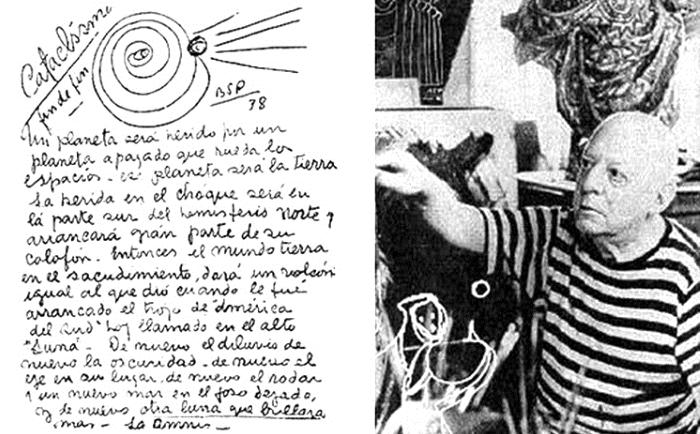 Cataclismo
fin de fin
BSP
78
Un planeta será herido por un
planeta apagado que rueda los
espacios. ese planeta será la tierra
La herida en el choque será en
la parte sur del hemisferio Norte y
arrancará gran parte de su
colofón. Entonces el mundo tierra
en el sacudimiento, dará un volcón
igual al que dió cuando le fue
arrancado el trozo de América
del Sud hoy llamado en el alto
"Luna". De nuevo el diluvio de
nuevo la oscuridad. de nuevo el
eje en su lugar. de nuevo el rodar
y un nuevo mar en el foso dejado,
y de nuevo otra luna que brillará
mas -